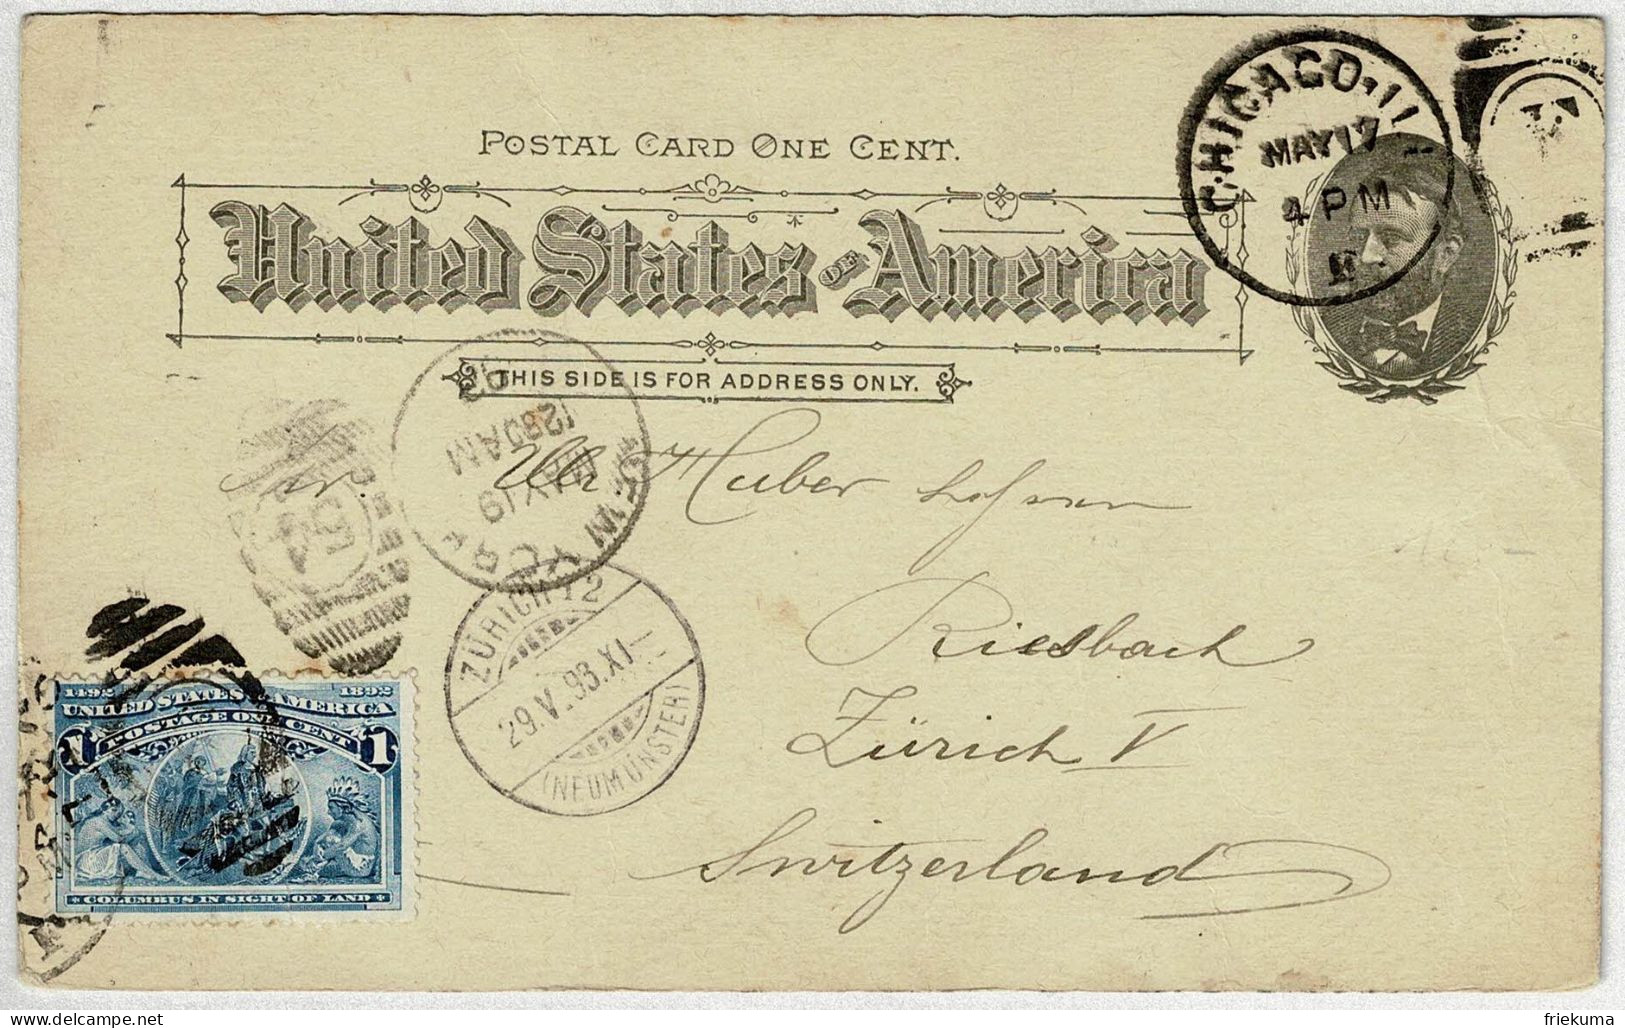 POSTAL CARD ONE CENT.
United States OF America
THIS SIDE IS FOR ADDRESS ONLY.
CHICAGO, ILL
MAY 17
4 PM
NEW YORK
MAY 19
1230AM
93
Ulr. Huber
Riesbach
Zürich V
Switzerland
ZÜRICH 12
29.V.93.XI
(NEUMÜNSTER)
1492 1892
UNITED STATES OF AMERICA
POSTAGE ONE CENT
1 1
COLUMBUS IN SIGHT OF LAND
friekuma